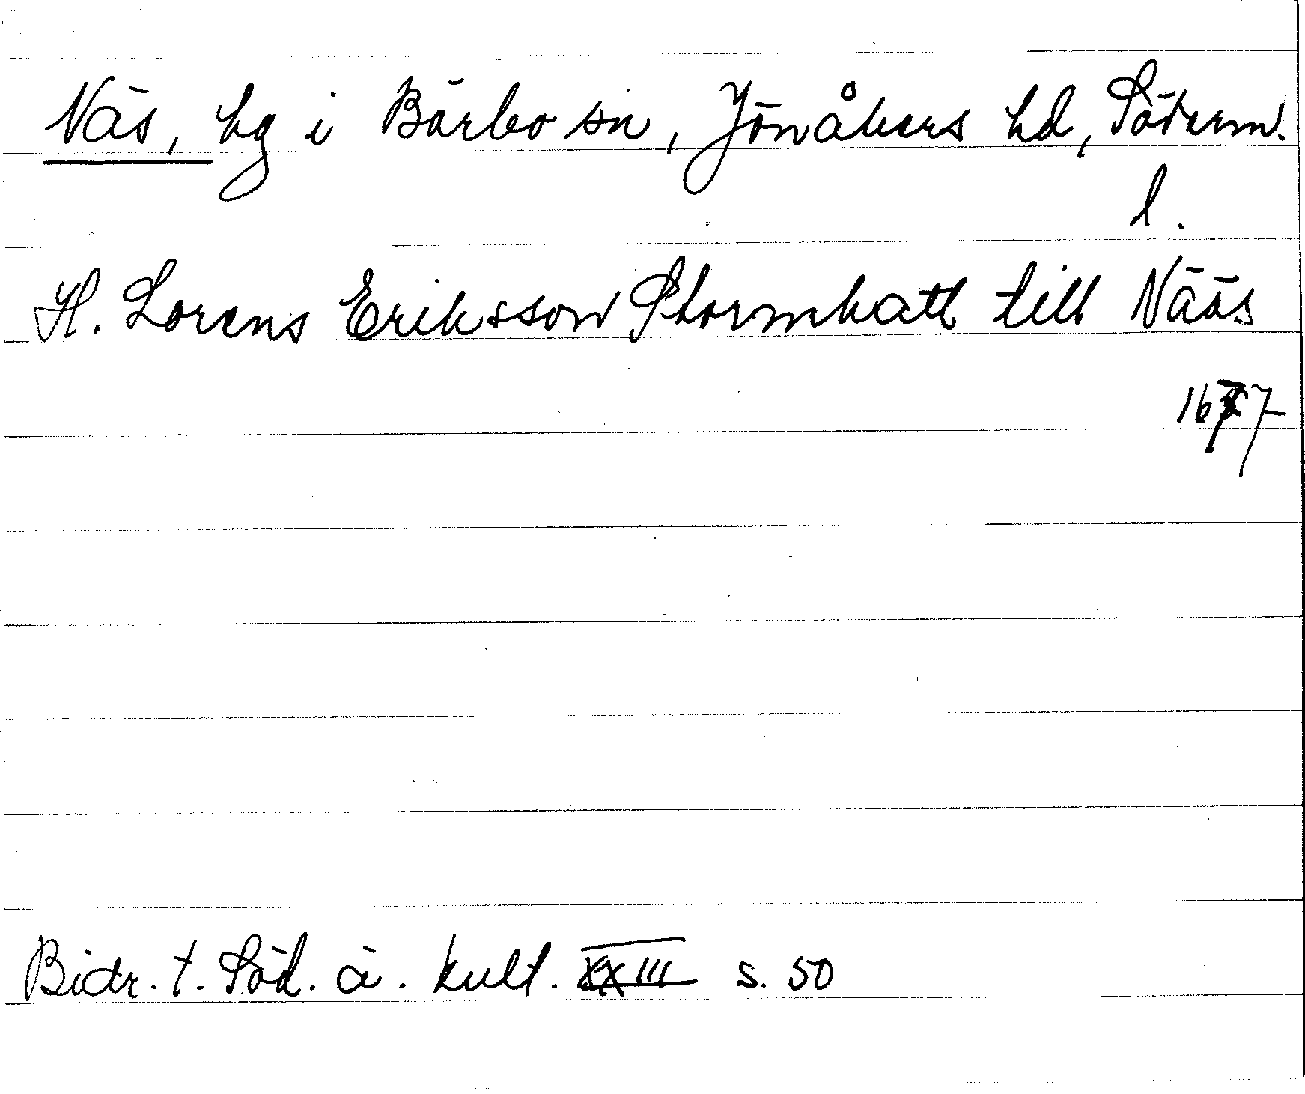 Näs, hg i Bärbo sn, Jönåkers hd, Söderm.
l.
H. Lorens Eriksson Stormhatt till Nääs
Bidr. t. Söd. ä. kult. XXIII s. 50